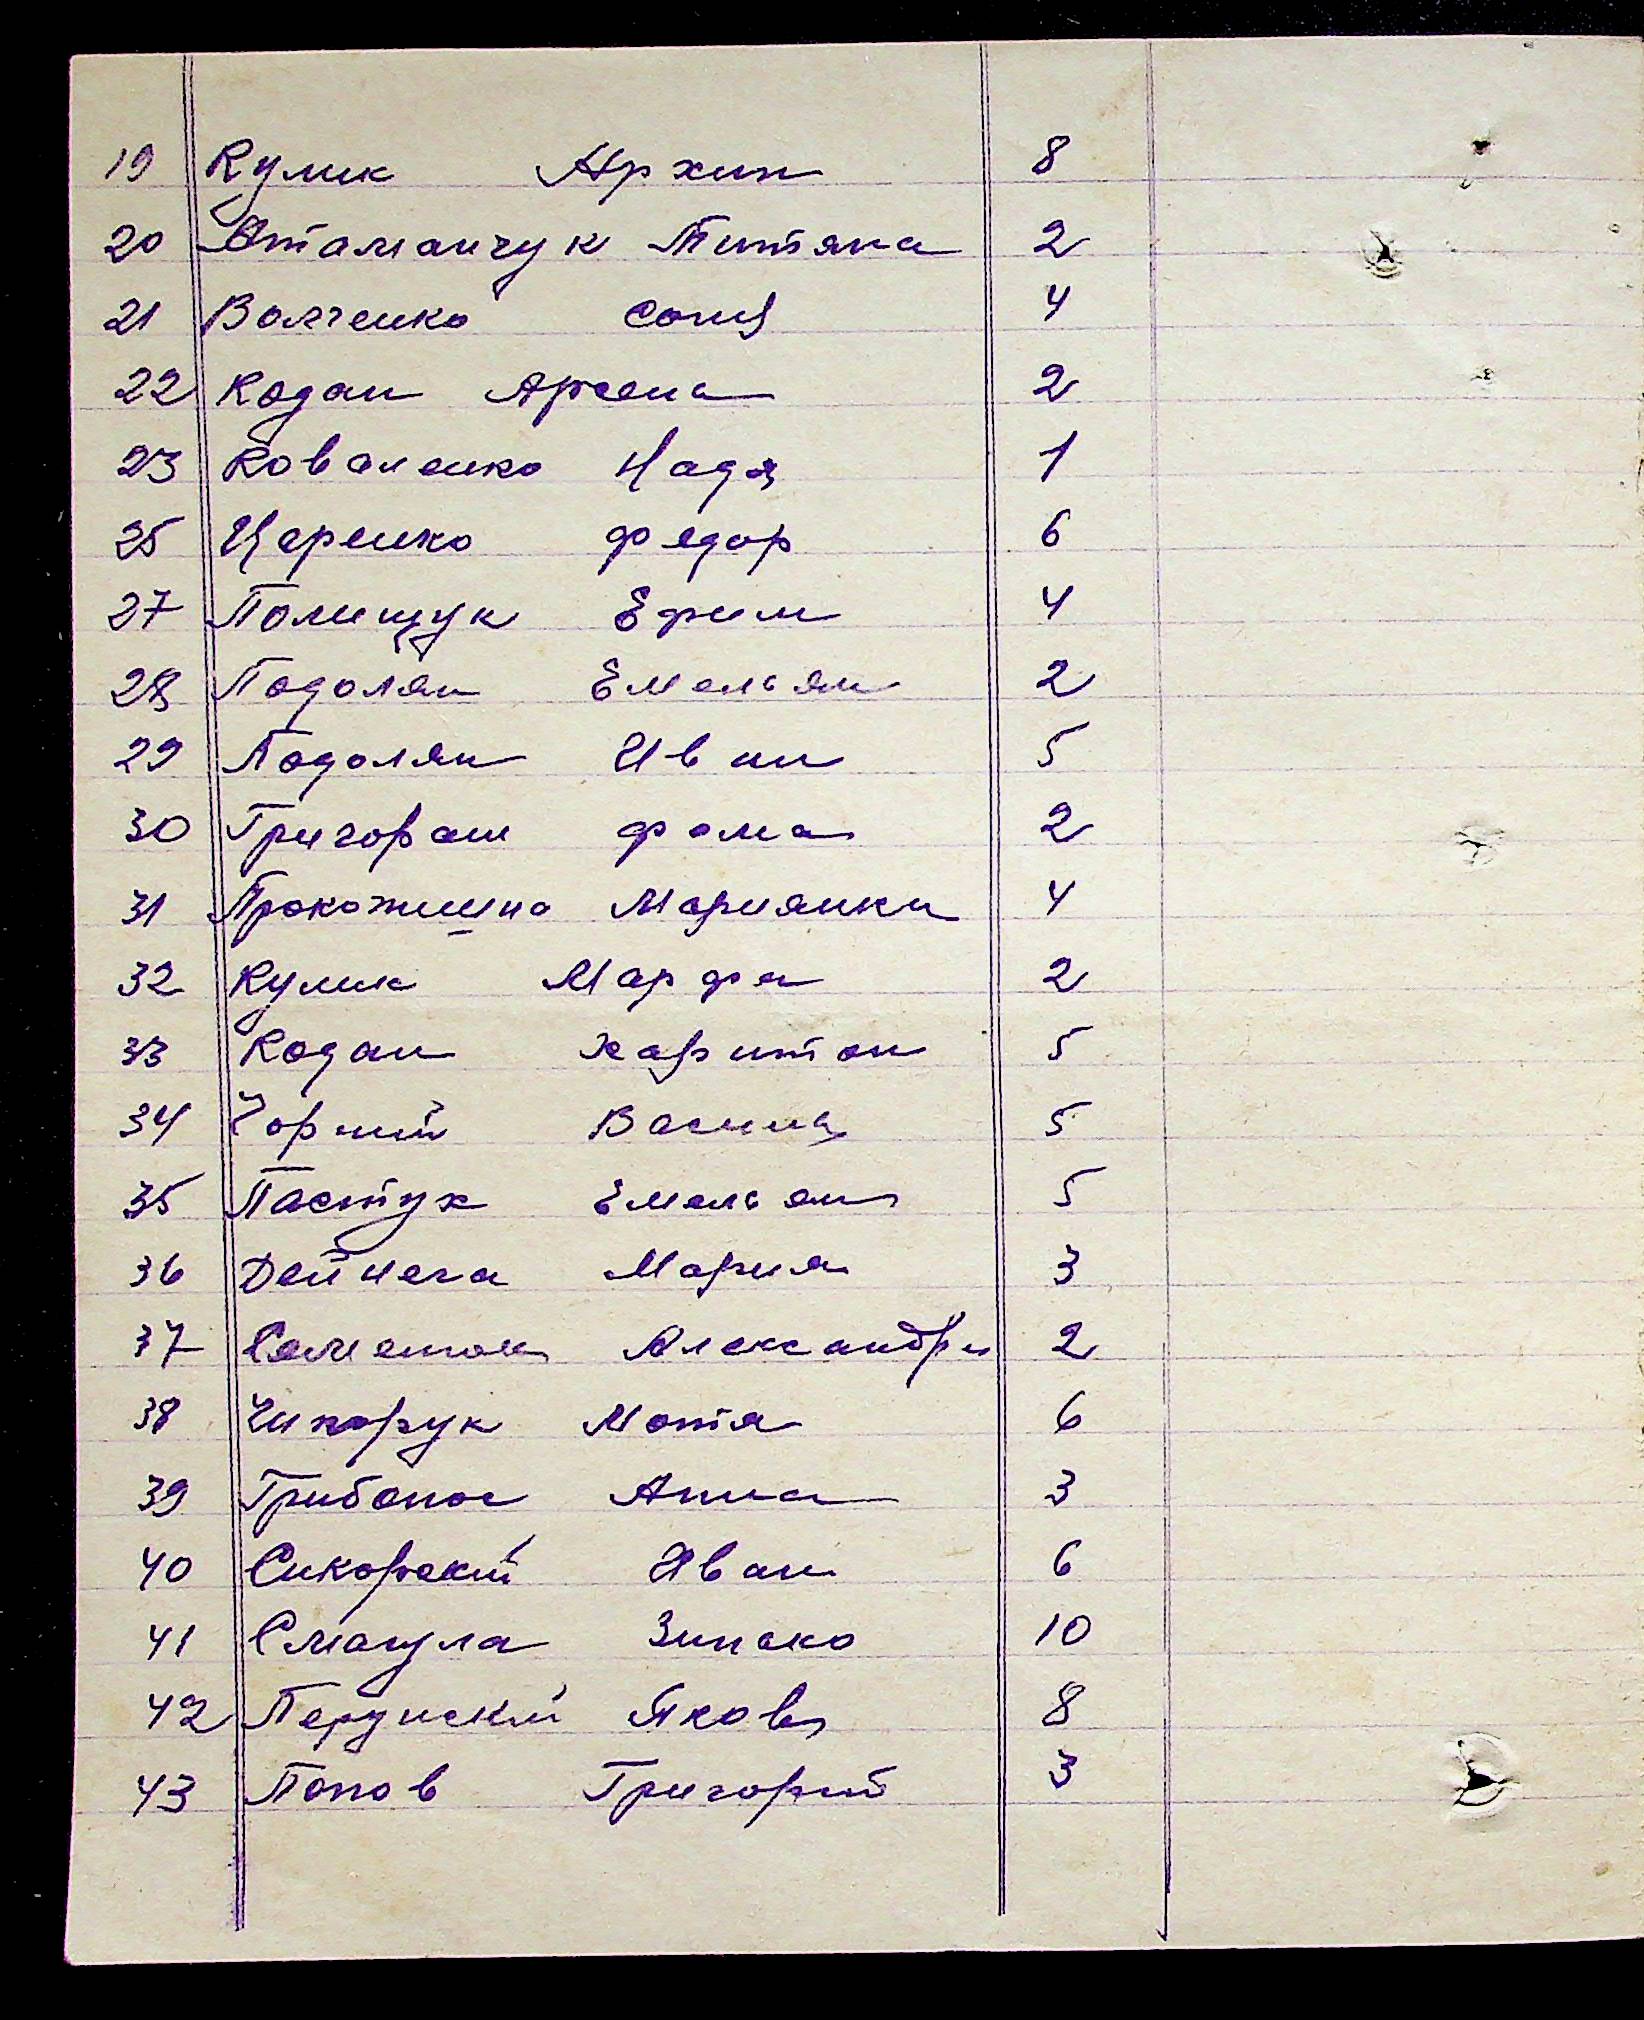 19 Кулик Архип 8
20 Отаманчук Титяна 2
21 Волченко Соня 4
22 Кодан Арсена 2
23 Коваленко Надя 1
25 Царенко Федор 6
27 Полищук Ефим 4
28 Подолян Емельян 2
29 Подолян Иван 5
30 Григораш Фома 2
31 Прокожишна Мариянка 4
32 Кулик Марфа 2
33 Кодан Харитон 5
34 Чорний 5
35 Пастух Емельян 5
36 Дейнега Мария 3
37 Александра 2
38 Чикорук Мотя 6
39 Грибонос Анна 3
40 Сикорский Иван 6
41 Смагула Зинько 10
42 Яков 8
43 Попов Григорий 3